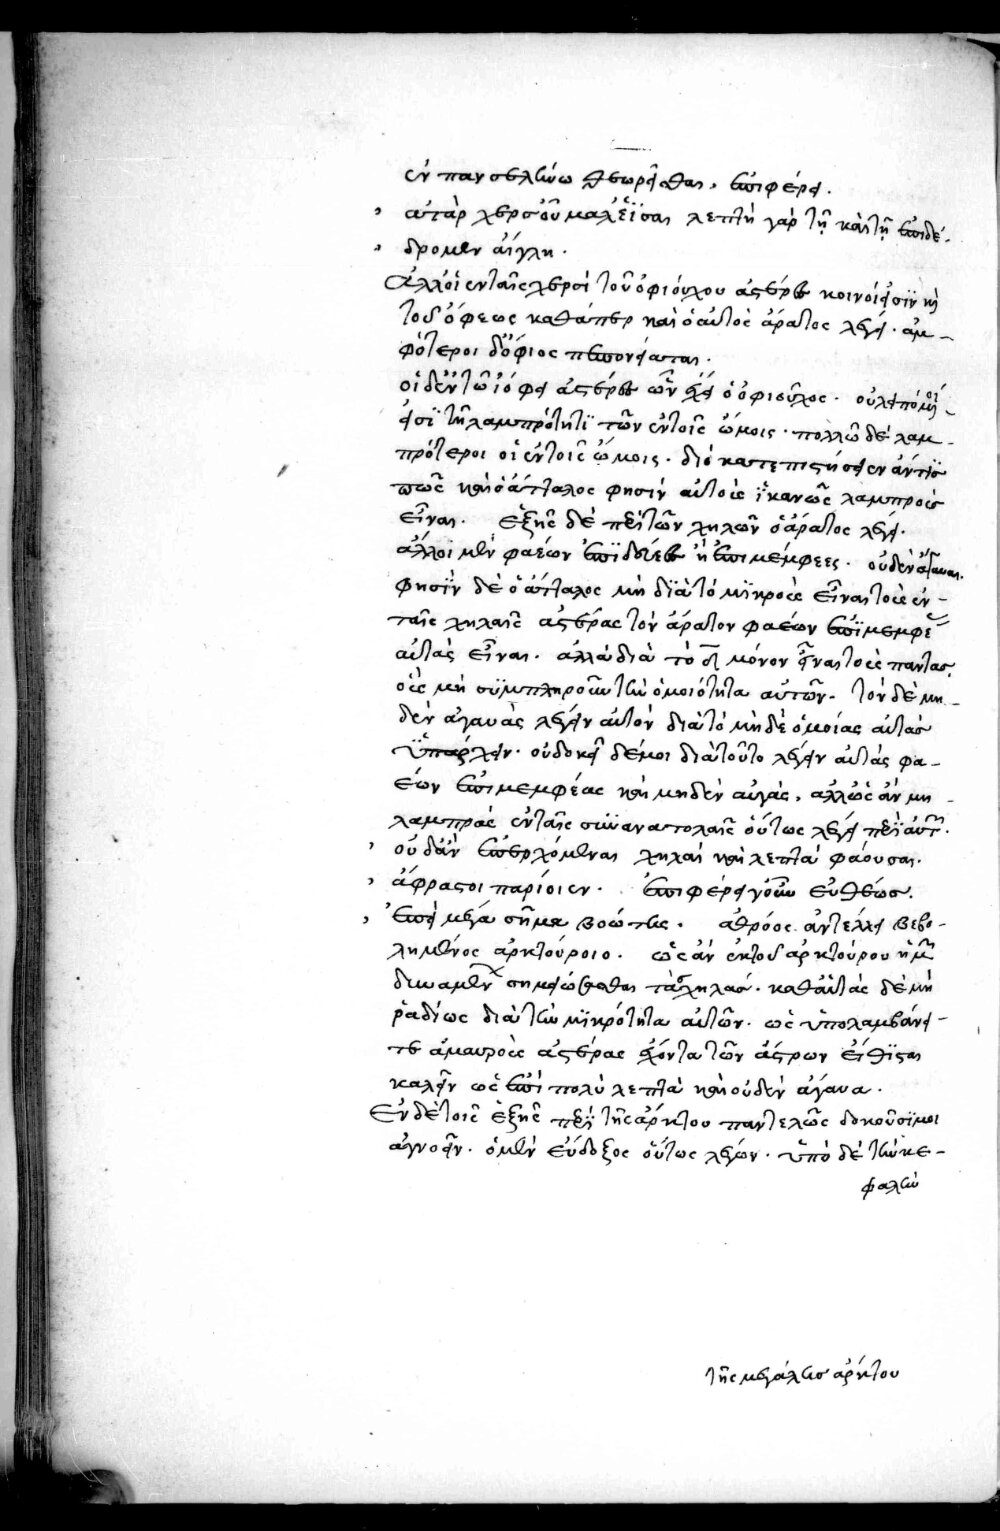 ἐν πανσελήνω θεωρεῖσθαι, ἐπιφέρει.
αὐτὰρ χερσὶν οὐ μάλ' εἶϊσαι λεπτὴ γὰρ τῇ καὶ τῇ ἐπιδέ-
δρομεν αἴγλη.
Ἀλλ' οἱ ἐν ταῖς χερσὶ τοῦ ὀφιούχου ἀστέρες κοινοί εἰσϊν καὶ
τοῦ ὄφεως καθάπερ καὶ ὁ αὐτὸς ἄρατος λέγει. ἀμ-
φότεροι δ' ὄφιος πεπονείαται.
οἱ δ' ἐν τῶ ὄφει ἀστέρες ὧν ἔχει ὁ ὀφιοῦχος. οὐ λείπόμενοι
εἰσϊ τῆ λαμπρότητϊ τῶν ἐν τοῖς ὤμοις. πολλῶ δὲ λαμ-
πρότεροι οἱ ἐν τοῖς ὤμοις. διὸ
πως καὶ ὁ ἄτταλος φησὶν αὐτοὺς ἱκανῶς λαμπροὺς
εἶναι. ἑξῆς δὲ περὶ τῶν χηλῶν ὁ ἄρατος λέγει.
ἀλλοι μὲν φαέων ἐπιδευέες ἢ ἐπιμεμφέες. οὐδὲν ἀγαυαί.
φησϊν δὲ ὁ ἄτταλος μὴ διὰ τὸ μϊκροὺς εἶναι τοὺς ἐν
ταῖς χηλαῖς ἀστέρας τὸν ἄρατον φαέων ἐπϊμεμφέ
αὐτὰς εἶναι. ἀλλὰ διὰ τὸ δ μόνον εἶναι τοὺς πάντας
οὓς μὴ συμπληροῦν τὴν ὁμοιότητα αὐτῶν. τὸν δὲ μη-
δὲν ἀγαυὰς λέγειν αὐτὸν διὰ τὸ μηδὲ ὁμοίας αὐτὰς
ὑπάρχειν. οὐ δοκεῖ δέ μοι διὰ τοῦτο λέγειν αὐτὰς φα-
έων ἐπιμεμφέας καὶ μηδὲν αὐγὰς, ἀλλ' ὡς ἂν μὴ
λαμπρὰς ἐν ταῖς συνανατολαῖς οὕτως λέγει περὶ αὐτῶν.
οὐδ' ἂν ἐπερχόμεναι χηλαὶ καὶ λεπτὰ φάουσαι.
ἄφραστοι παρίοιεν. ἐπιφέρει γοῦν εὐθέως.
ἐπεὶ μέγα σῆμα βοώτης. ἀθρόος ἀντέλλει βεβο-
λημένος ἀρκτούροιο. ὡς ἂν ἐκ τοῦ ἀρκτούρου ἡμῶν
δυναμένων σημειώσασθαι τὰς χηλάς. καθ' αὑτὰς δὲ μὴ
ῥαδίως διὰ τὴν μϊκρότητα αὐτῶν. ὡς ὑπολαμβάνει-
τε ἀμαυροὺς ἀστέρας ἔχοντα τῶν ἄστρων εἴθϊσται
καλεῖν ὡς ἐπὶ πολὺ λεπτὰ καὶ οὐδὲν ἀγαυά.
Ἐν δὲ τοῖς ἑξῆς περὶ τῆς ἄρκτου παντελῶς δοκοῦσϊ μοι
ἀγνοεῖν. ὁ μὲν εὔδοξος οὕτως λέγων. ὑπὸ δὲ τὴν κε-
φαλὴν
τῆς μεγάλης ἄρκτου